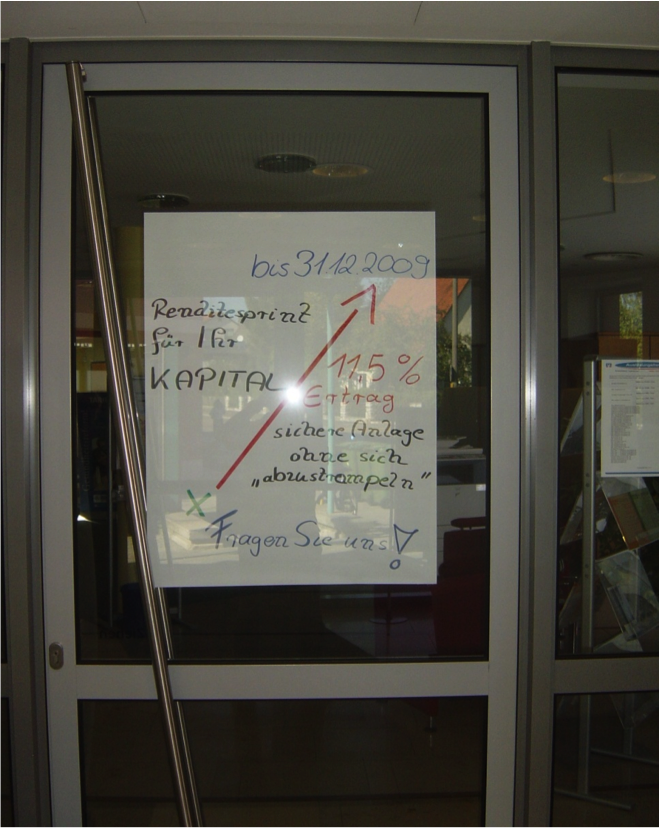 bis 31.12.2009
Renditesprint
für Ihr
KAPITAL
11,5 %
Ertrag
sichere Anlage
ohne sich
„abzustrampeln“
Fragen Sie uns!